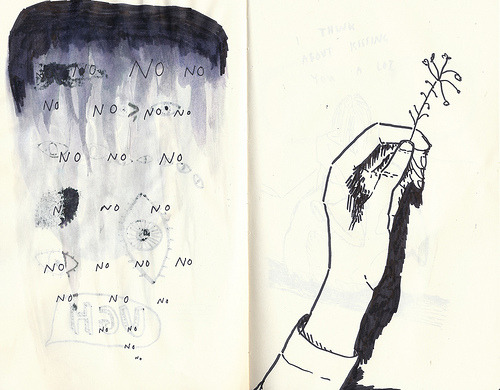 NO NO NO
NO NO NO NO
NO NO NO
NO NO NO
NO NO NO NO
NO NO NO
UGH
NO NO
NO
NO
I THINK
ABOUT
YOU A LOT